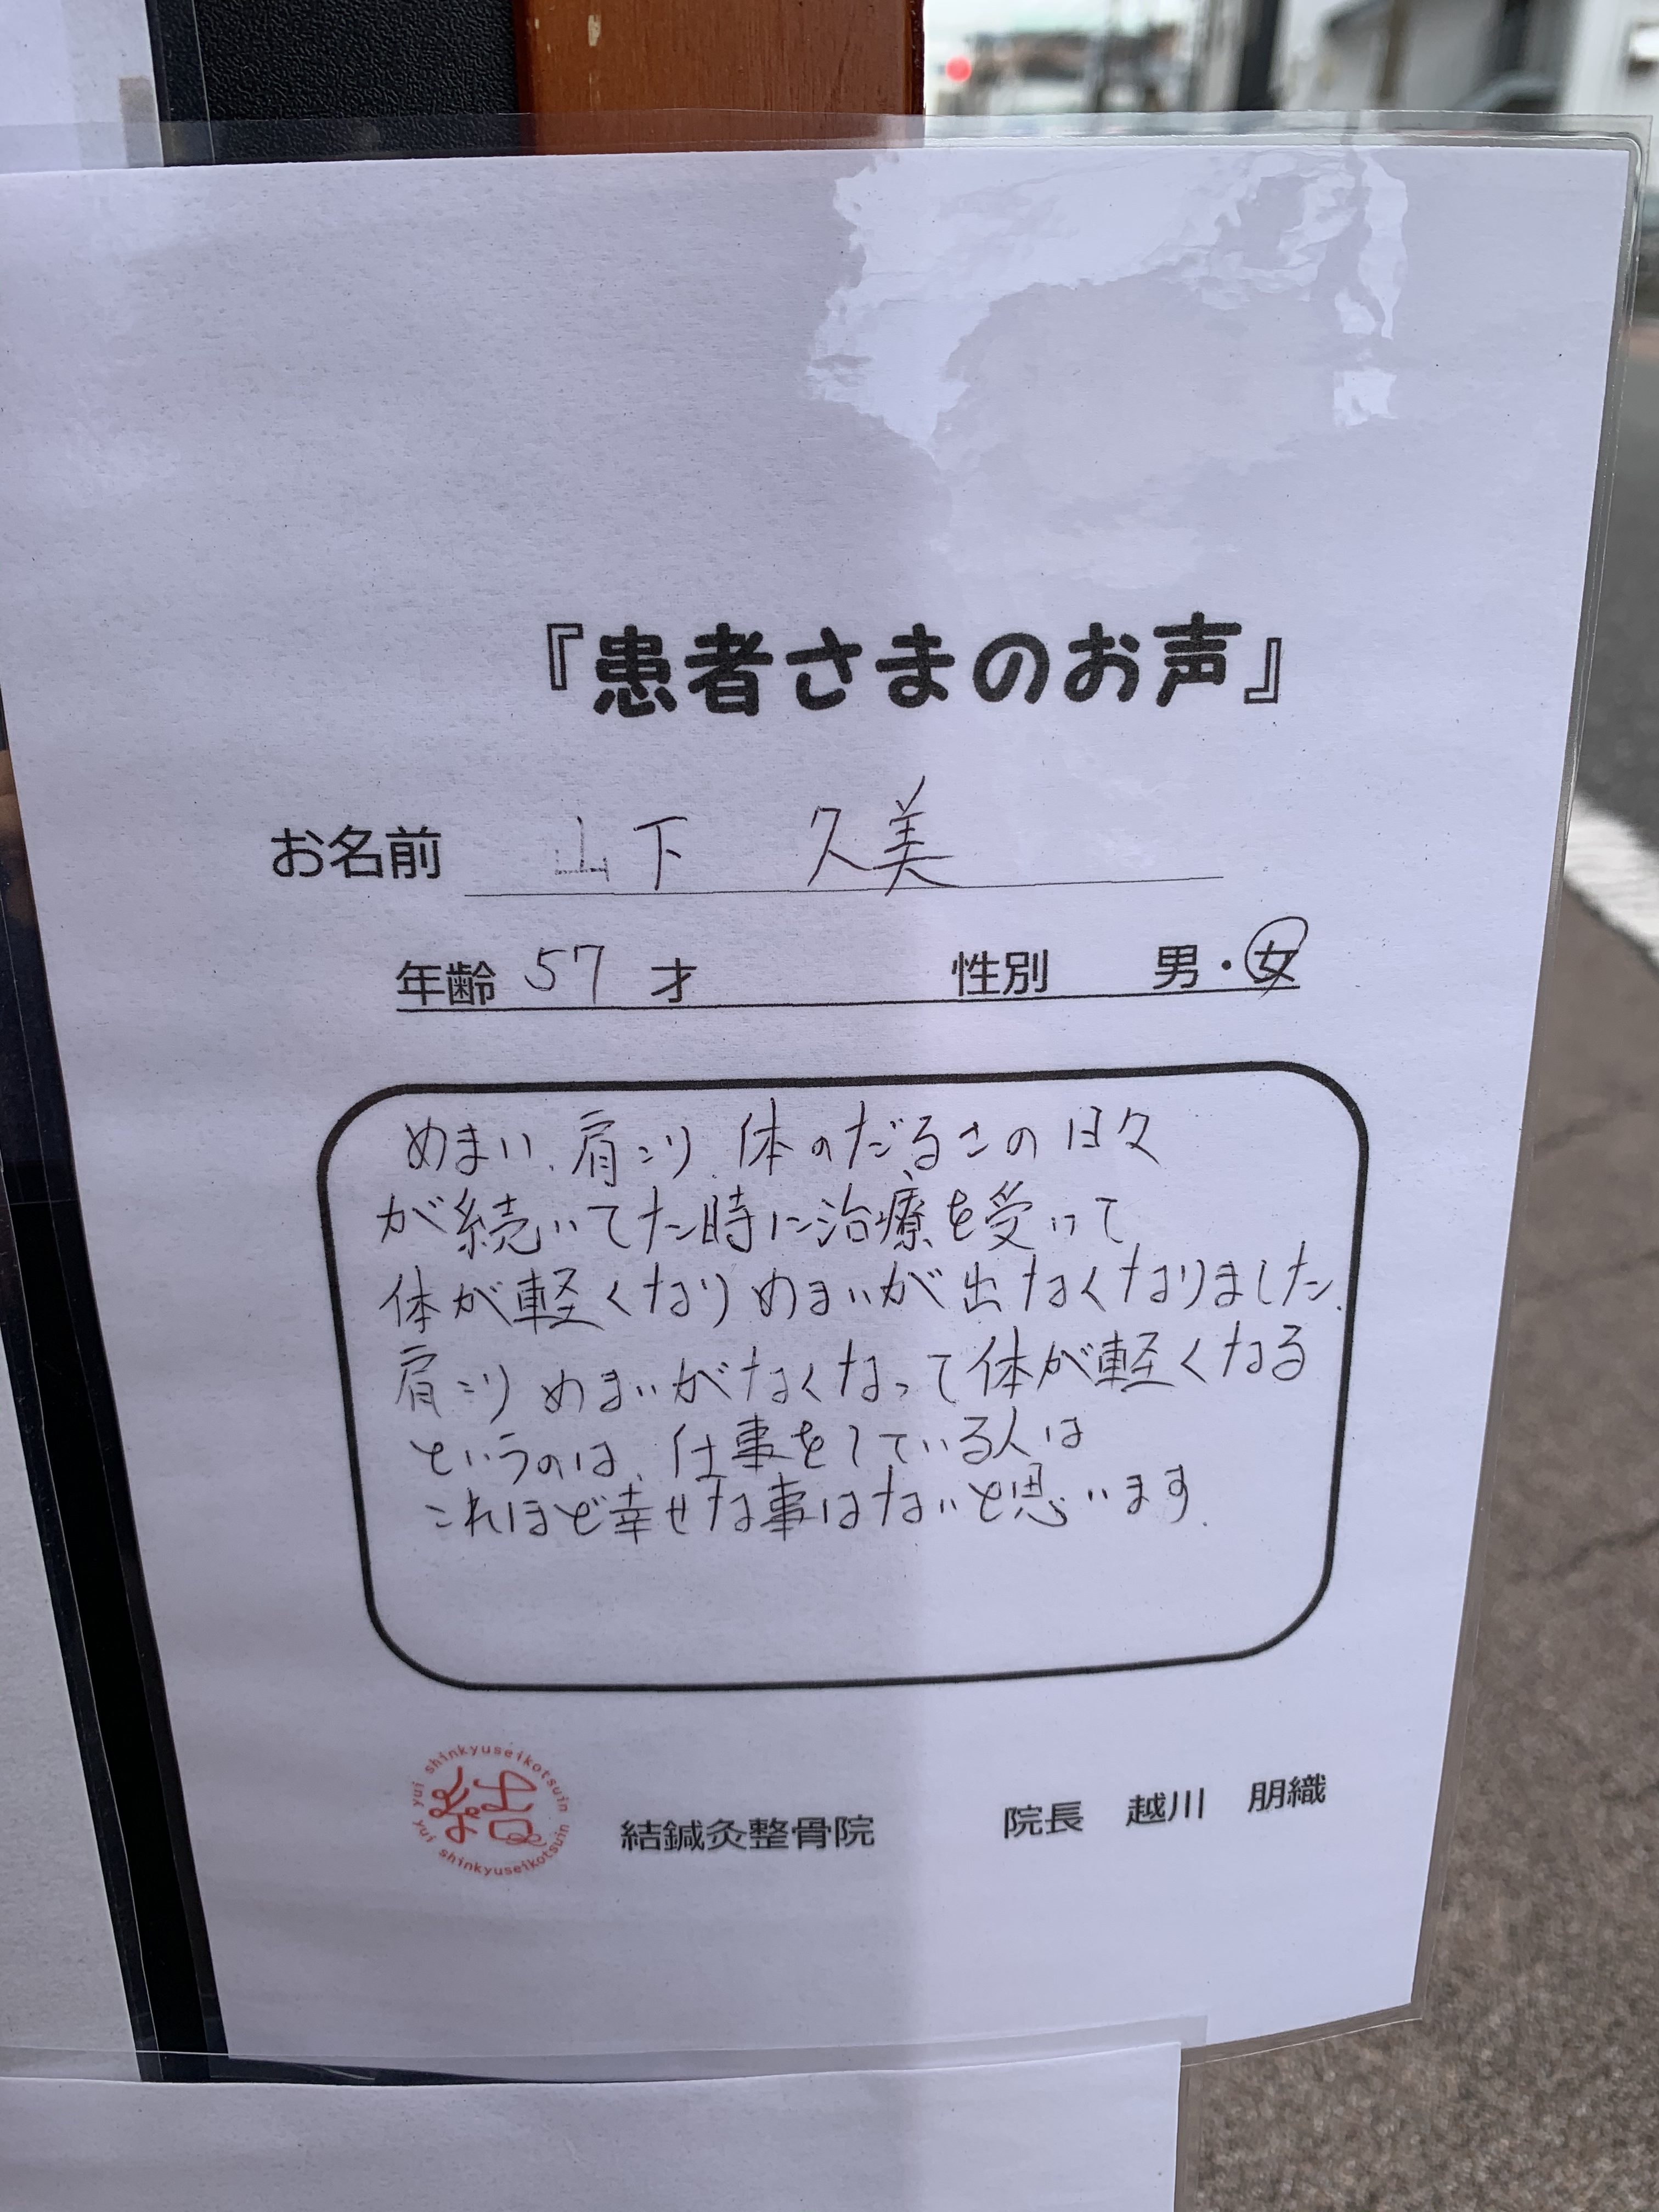 『患者さまのお声』
お名前 山下 久美
年齢 57 才 性別 男・女
めまい、肩こり、体のだるさの日々
が続いてた時に治療を受けて
体が軽くなりめまいが出なくなりました。
肩こりめまいがなくなって体が軽くなる
というのは、仕事をしている人は
これほど幸せな事はないと思います。
yui shinkyuseikotsuin
結
yui shinkyuseikotsuin
結鍼灸整骨院 院長 越川 朋織